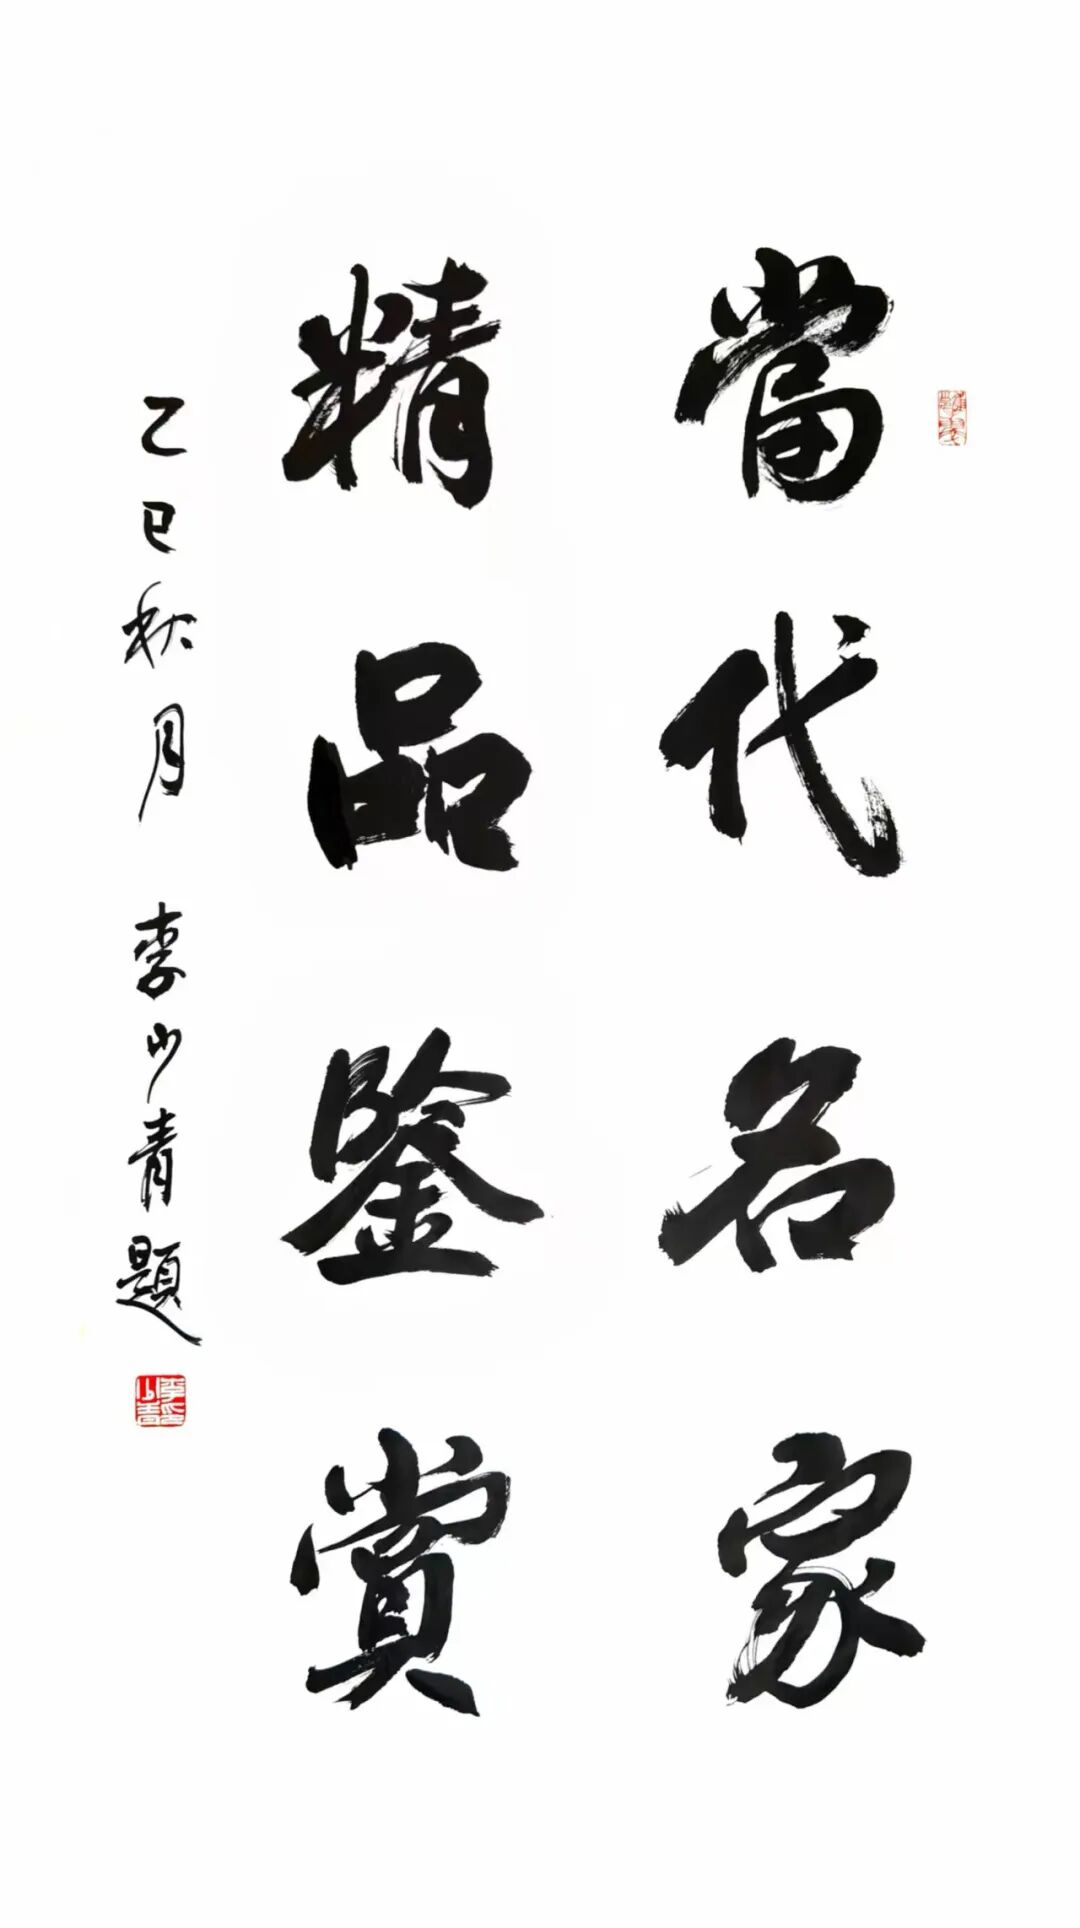 當代名家
精品鑒賞
乙巳秋月 李少青題
李少青印